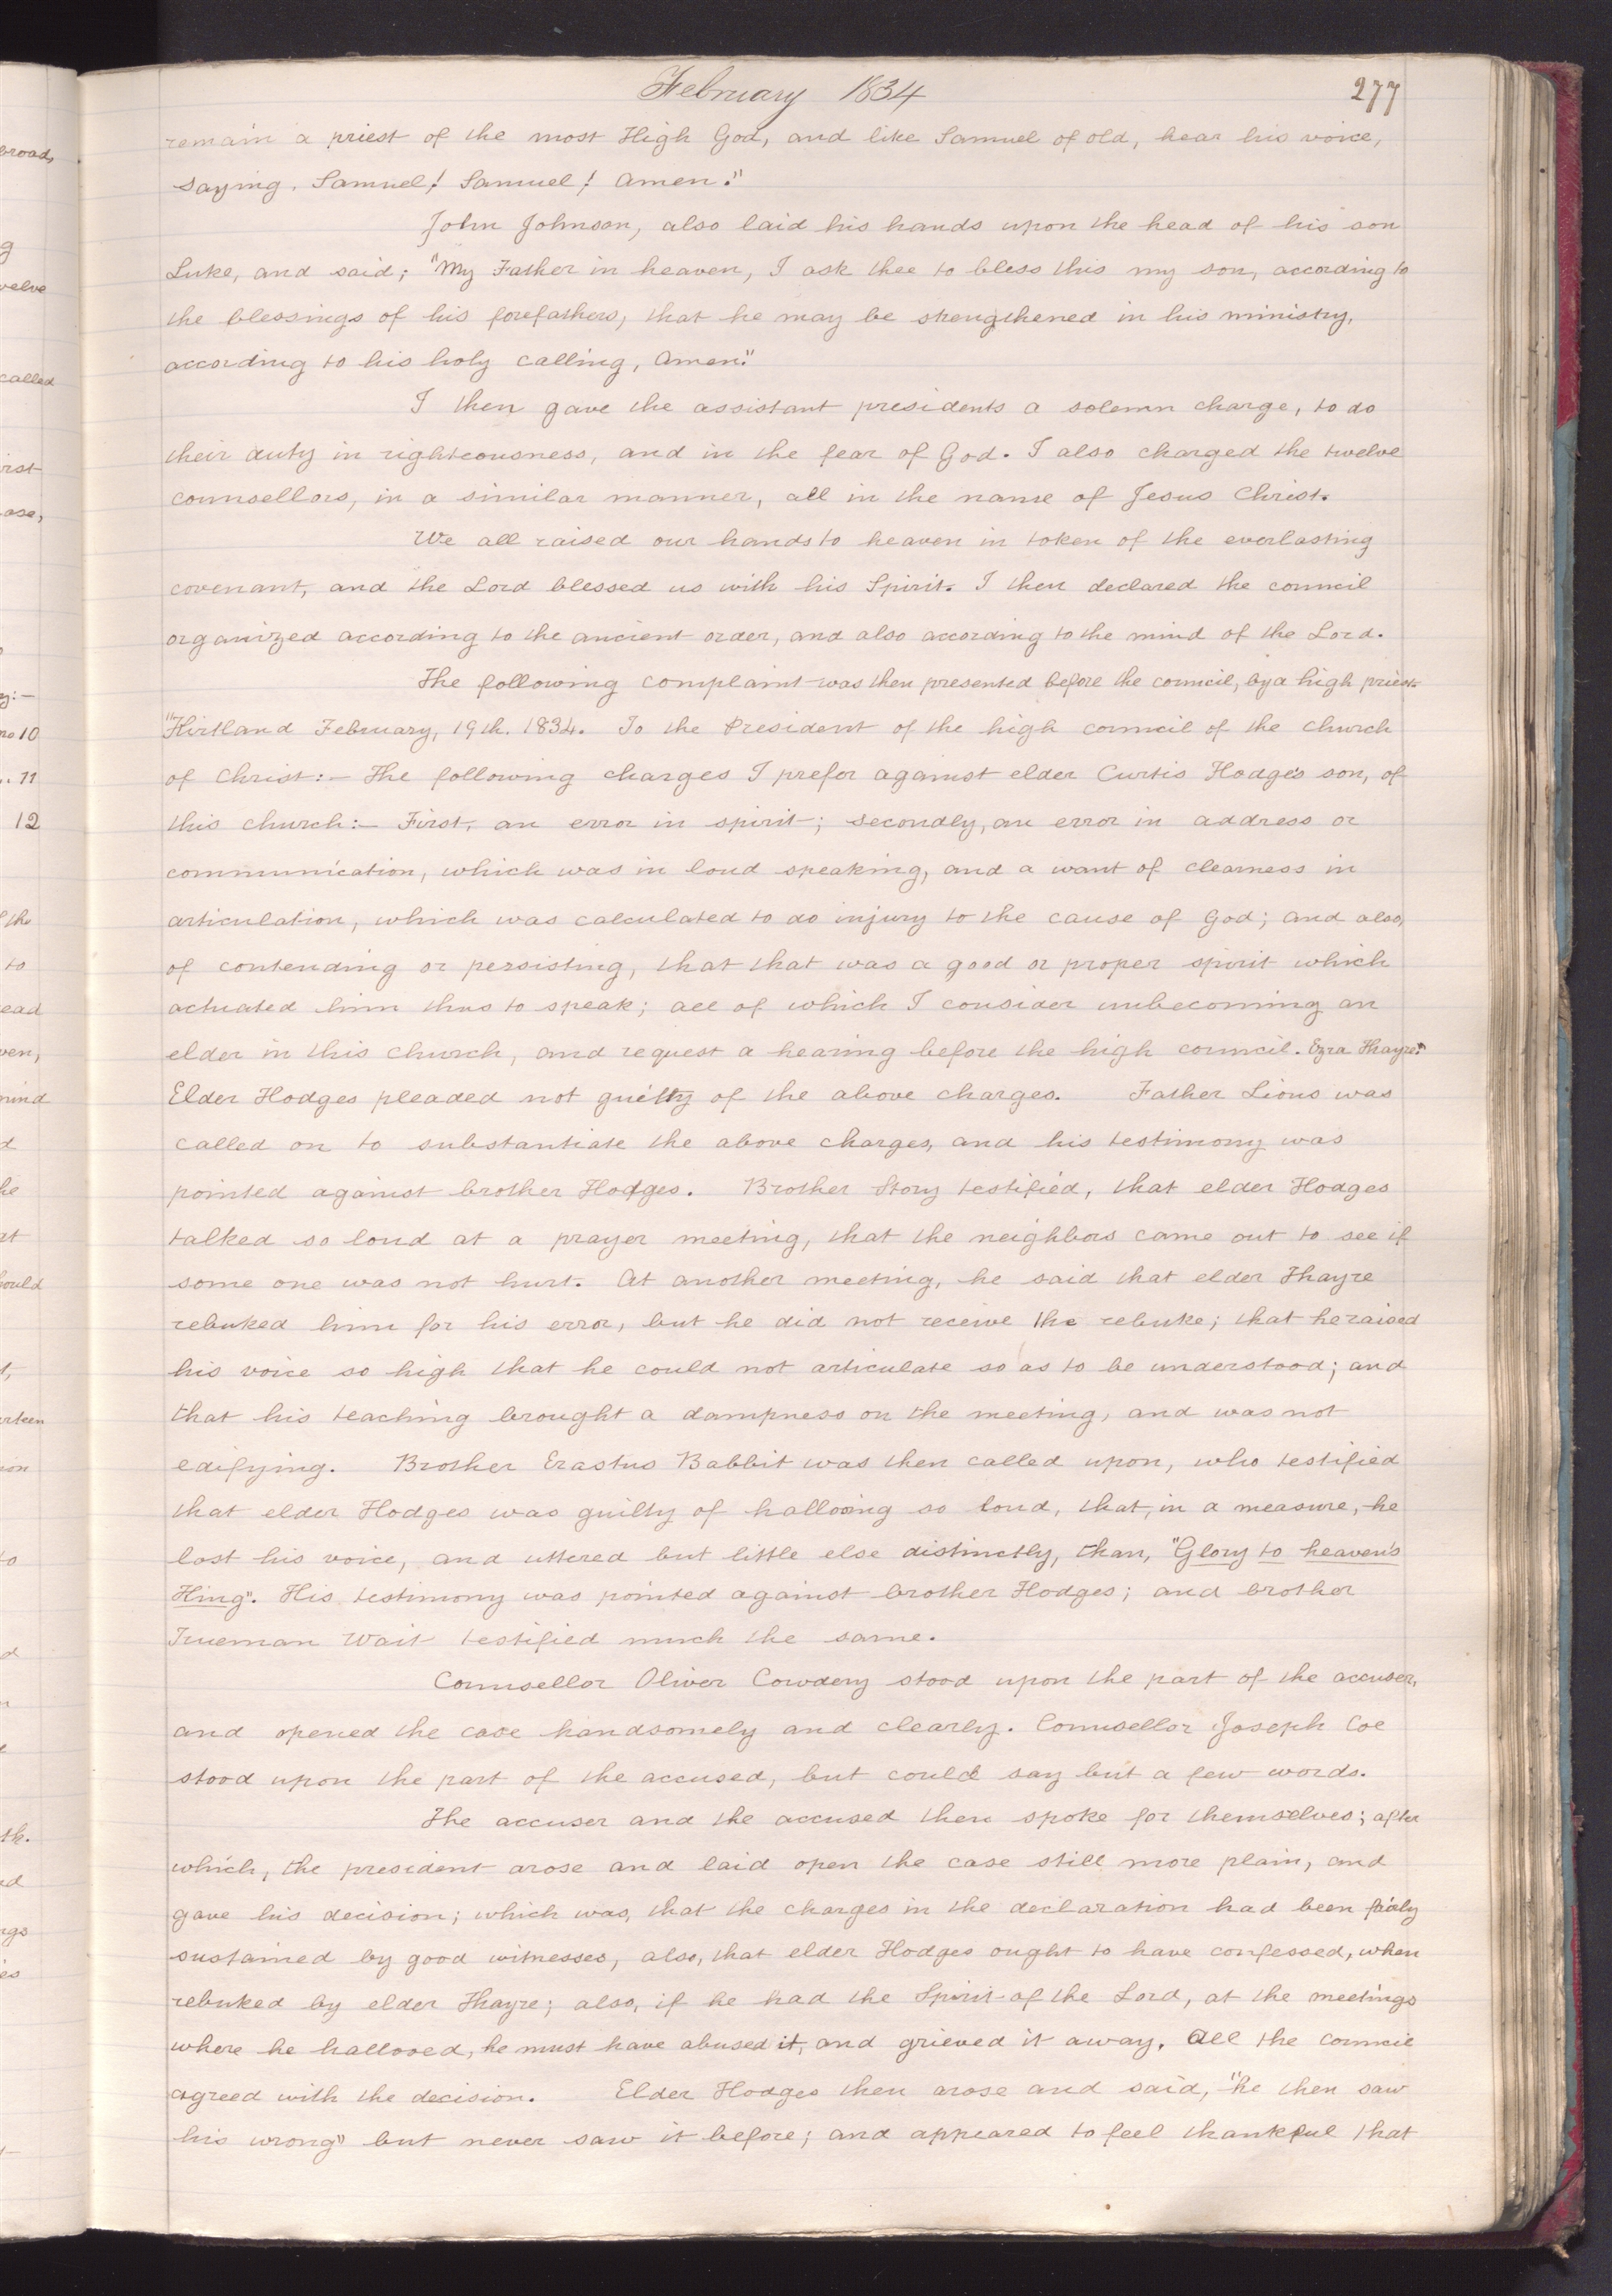 February 1834
277
remain a priest of the most High God, and like Samuel of old, hear his voice,
saying, Samuel! Samuel! Amen."
John Johnson, also laid his hands upon the head of his son
Luke, and said; "My Father in heaven, I ask thee to bless this my son, according to
the blessings of his forefathers, that he may be strengthened in his ministry,
according to his holy calling, Amen."
I then gave the assistant presidents a solemn charge, to do
their duty in righteousness, and in the fear of God. I also charged the twelve
counsellors, in a similar manner, all in the name of Jesus Christ.
We all raised our hands to heaven in token of the everlasting
covenant, and the Lord blessed us with his Spirit. I then declared the council
organized according to the ancient order, and also according to the mind of the Lord.
The following complaint was then presented before the council, by a high priest.
"Kirtland February, 19th. 1834. To the President of the high council of the church
of Christ:— The following charges I prefer against elder Curtis Hodges son, of
this church:— First, an error in spirit; secondly, an error in address or
communication, which was in loud speaking, and a want of clearness in
articulation, which was calculated to do injury to the cause of God; and also,
of contending or persisting, that that was a good or proper spirit which
actuated him thus to speak; all of which I consider unbecoming an
elder in this church, and request a hearing before the high council. Ezra Thayre."
Elder Hodges pleaded not guilty of the above charges. Father Lions was
called on to substantiate the above charges, and his testimony was
pointed against brother Hodges. Brother Story testified, that elder Hodges
talked so loud at a prayer meeting, that the neighbors came out to see if
some one was not hurt. At another meeting, he said that elder Thayre
rebuked him for his error, but he did not receive the rebuke; that he raised
his voice so high that he could not articulate so as to be understood; and
that his teaching brought a dampness on the meeting, and was not
edifying. Brother Erastus Babbit was then called upon, who testified
that elder Hodges was guilty of hallooing so loud, that, in a measure, he
lost his voice, and uttered but little else distinctly, than, "Glory to heaven's
King". His testimony was pointed against brother Hodges; and brother
Trueman Wait testified much the same.
Counsellor Oliver Cowdery stood upon the part of the accuser,
and opened the case handsomely and clearly. Counsellor Joseph Coe
stood upon the part of the accused, but could say but a few words.
The accuser and the accused then spoke for themselves; after
which, the president arose and laid open the case still more plain, and
gave his decision; which was, that the charges in the declaration had been fairly
sustained by good witnesses, also, that elder Hodges ought to have confessed, when
rebuked by elder Thayre; also, if he had the Spirit of the Lord, at the meetings
where he hallooed, he must have abused it, and grieved it away. All the council
agreed with the decision. Elder Hodges then arose and said, "he then saw
his wrong" but never saw it before; and appeared to feel thankful that